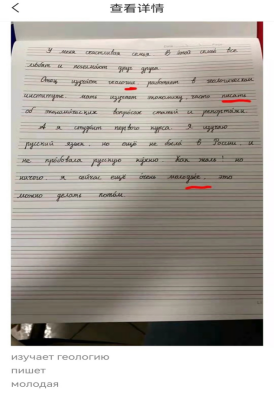 查看详情
У меня счастливая семья. В этой семье все
любят и понимают друг друга.
Отец изучает геологию работает в геологическом
институте. мать изучает экономику, часто писать
об экономических вопросах статей и репортажи.
А я студент первого курса. Я изучаю
русский язык, но ещё не была в России, и
не пробовала русскую кухню. Как жаль! но
ничего, я сейчас ещё молодая, это
можно делать потом.
изучает геологию
пишет
молодая